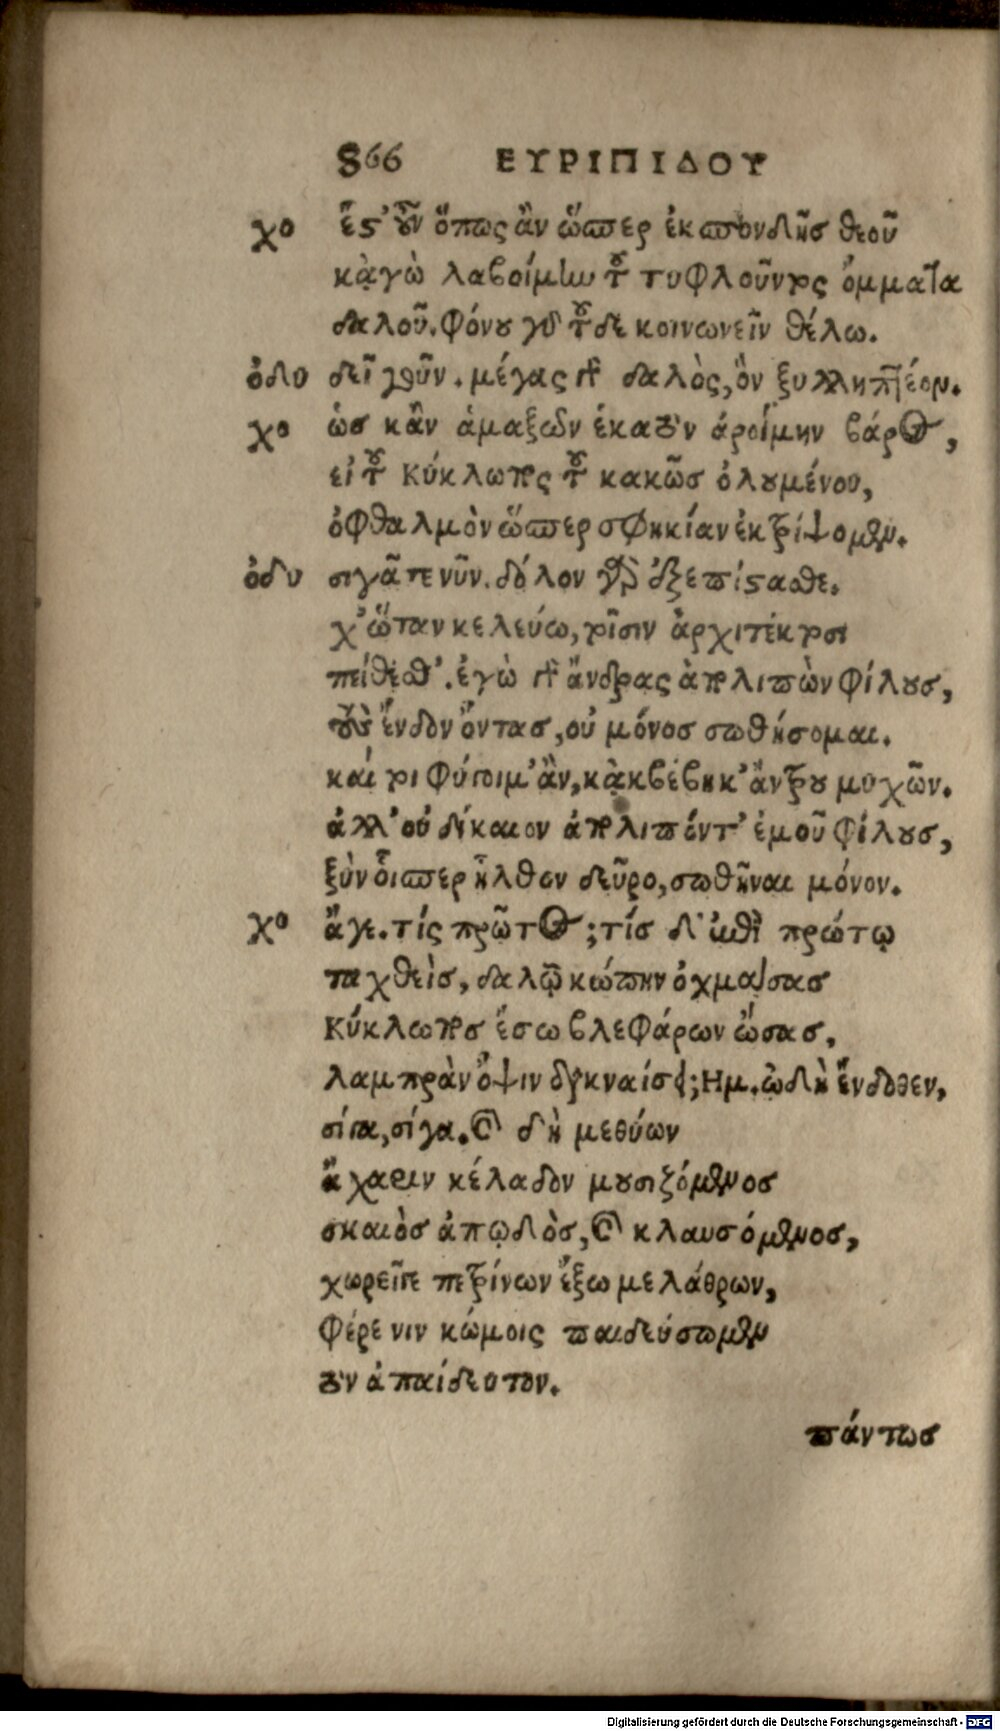 866 ΕΥΡΙΠΙΔΟΥ
χο ἔστ' οὖν ὅπως ἂν ὥσπερ ἐκ σπονδῆς θεοῦ
κᾀγὼ λαβοίμην τοῦ τυφλοῦντος ὄμματα
δαλοῦ. φόνου γὰρ τοῦδε κοινωνεῖν θέλω.
ὀδυ δεῖ γοῦν. μέγας γὰρ δαλὸς, ὃν ξυλληπτέον.
χο ὡς κἂν ἁμαξῶν ἑκατὸν ἀροίμην βάρος,
εἰ τοῦ Κύκλωπος τοῦ κακῶς ὀλουμένου,
ὀφθαλμὸν ὥσπερ σφηκίαν ἐκτρίψομεν.
ὀδυ σιγᾶτε νῦν. δόλον γὰρ ἐξεπίστασθε.
χ' ὥταν κελεύω, τοῖσιν ἀρχιτέκτοσι
πείθεσθ'. ἐγὼ γὰρ ἄνδρας ἀπολιπὼν φίλους,
τοὺς ἔνδον ὄντας, οὐ μόνος σωθήσομαι.
καί τοι φύγοιμ' ἂν, κᾀκβέβηκ' ἄντρου μυχῶν.
ἀλλ' οὐ δίκαιον ἀπολιπόντ' ἐμοῦ φίλους,
ξὺν οἷσπερ ἦλθον δεῦρο, σωθῆναι μόνον.
χο ἄγε. τίς πρῶτος; τίς δ' ἐπὶ πρώτῳ
ταχθεὶς, δαλῷ κώπην ὀχμάσας
Κύκλωπος ἔσω βλεφάρων ὤσας,
λαμπρὰν ὄψιν διακναίσει; Ημ. ᾠδὴ ἔνδοθεν,
σίγα, σίγα. καὶ δὴ μεθύων
ἄχαριν κέλαδον μουσιζόμενος
σκαιὸς ἀπῳδὸς, καὶ κλαυσόμενος,
χωρεῖ γε πετρίνων ἔξω μελάθρων,
φέρε νιν κώμοις παιδεύσωμεν
τὸν ἀπαίδευτον.
πάντως
Digitalisierung gefördert durch die Deutsche Forschungsgemeinschaft - DFG